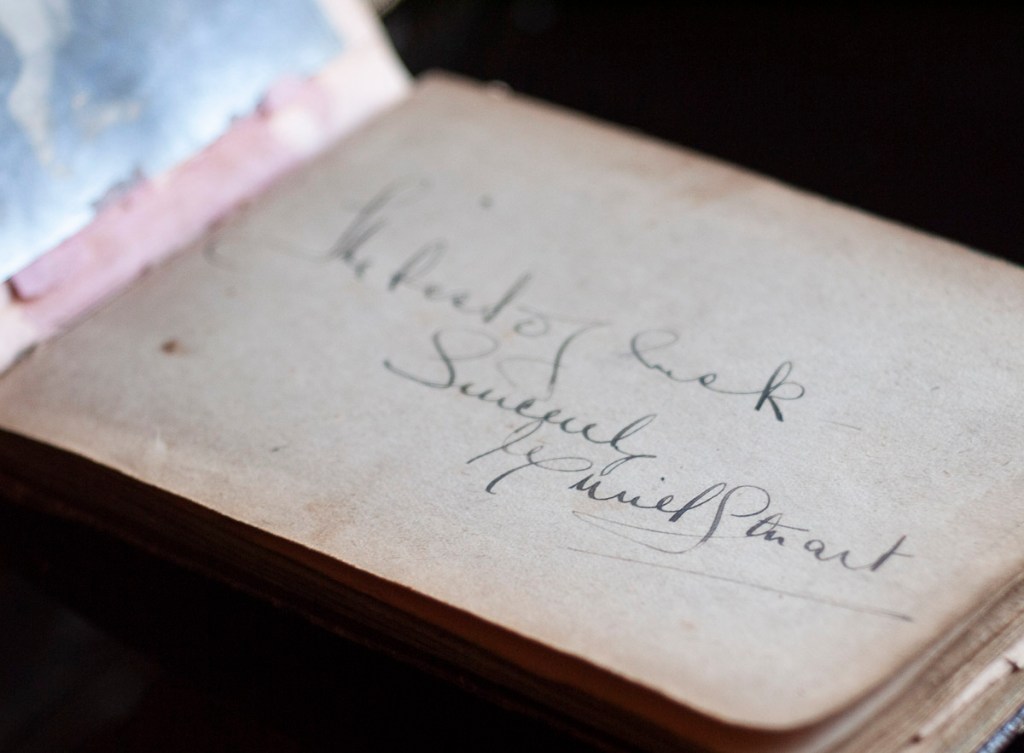 The best of luck
Sincerely
Muriel Stuart